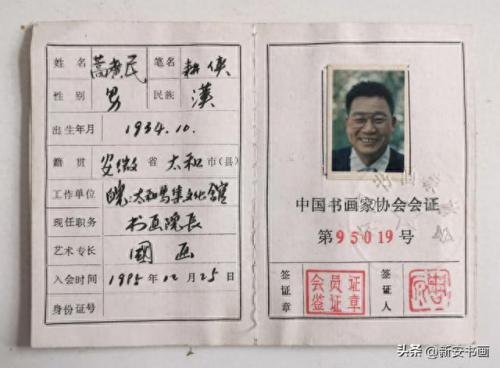 姓名 蒿煮民 笔名 耕侠
性别 男 民族 漢
出生年月 1934.10.
籍贯 安徽省 太和市(县)
工作单位 皖太和马集文化馆
现任职务 书画院长
艺术专长 國画
入会时间 1995年12月25日
身份证号
中国书画家协会会证
第95019号
签证章
会员证
鉴证章
签证人
头条 @新安书画